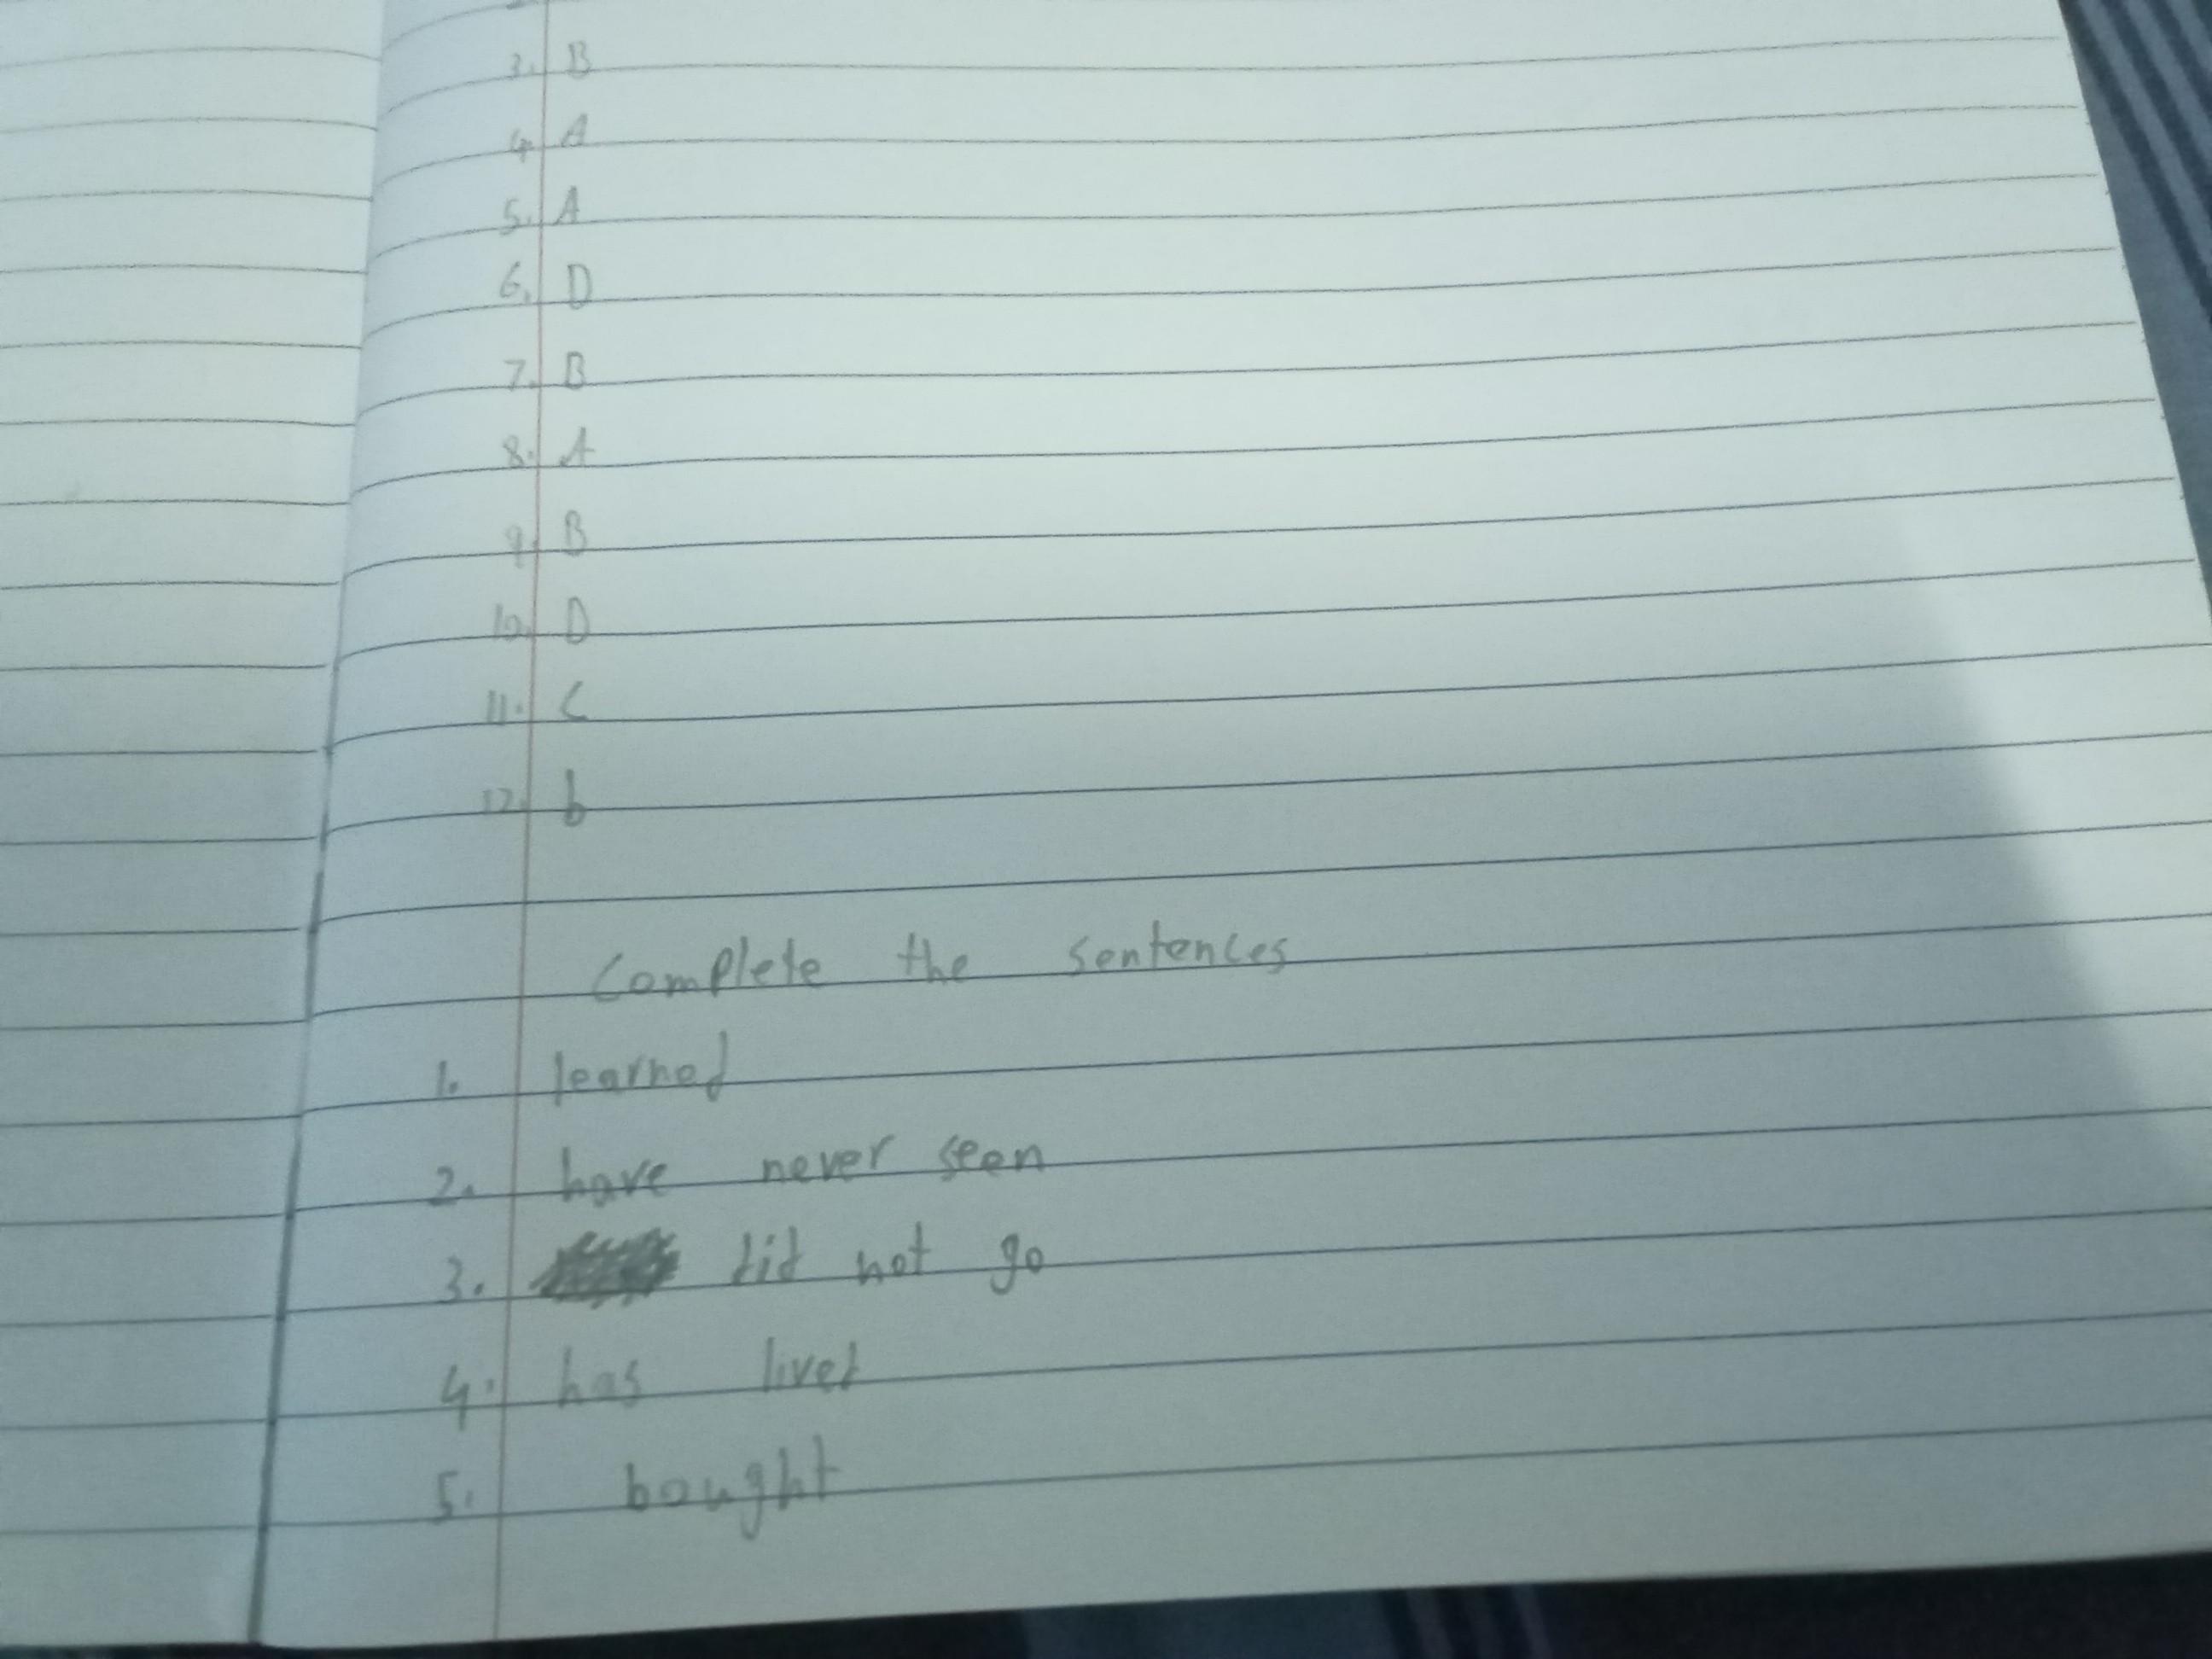 3. B
4. A
5. A
6. D
7. B
8. A
9. B
10. D
11. C
12. b
Complete the sentences
1. learned
2. have never seen
3. did not go
4. has lived
5. bought